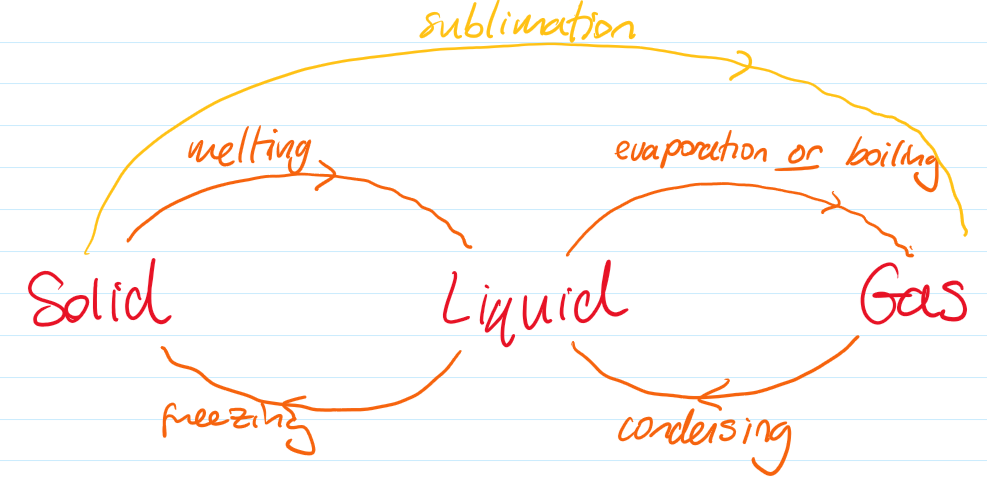 sublimation
melting
evaporation or boiling
Solid Liquid Gas
freezing
condensing